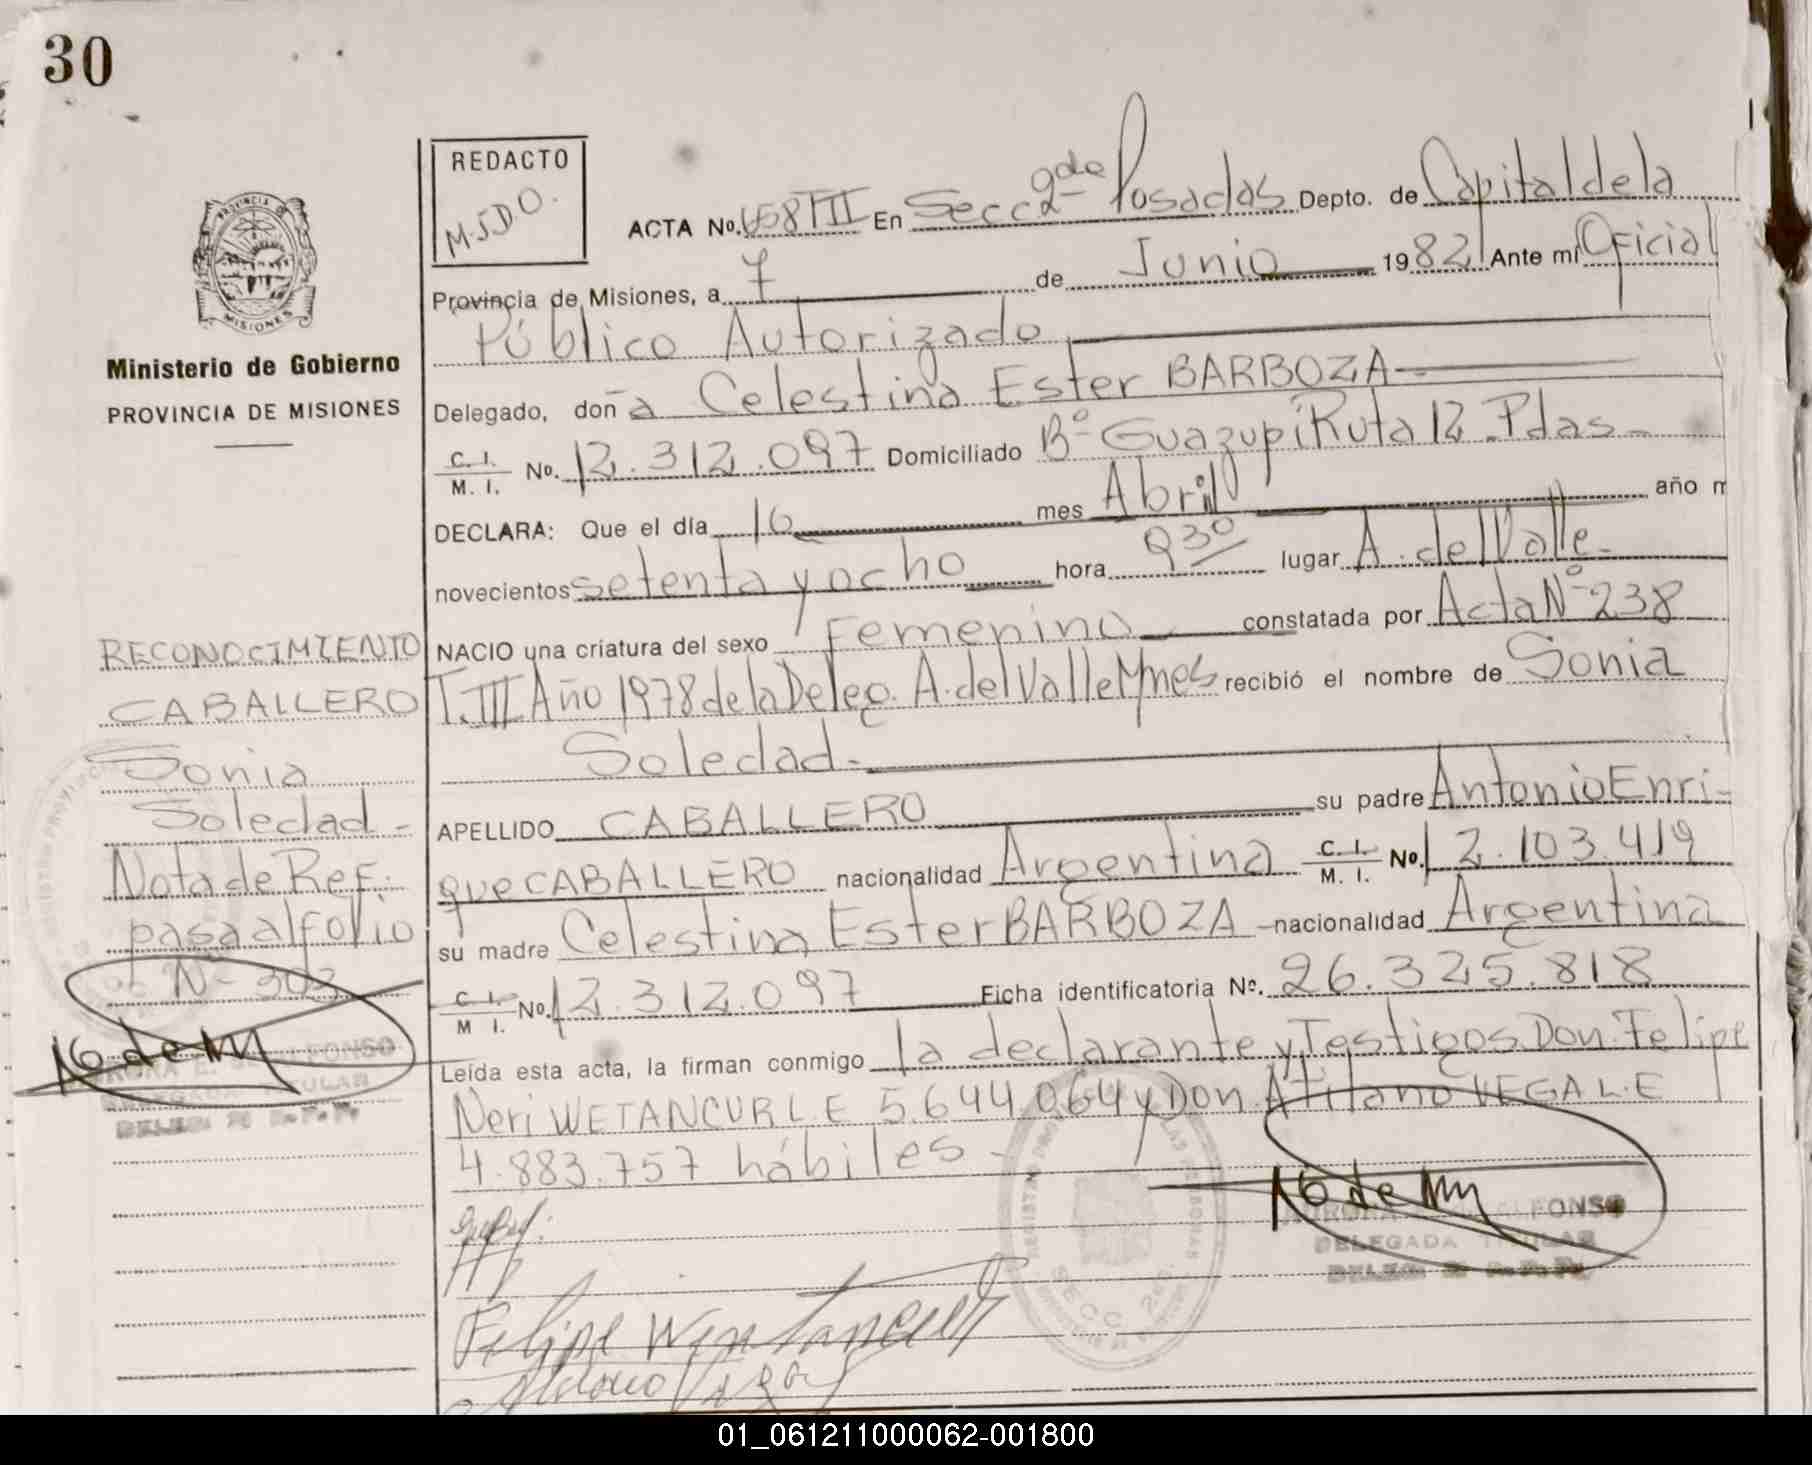 30
REDACTO
M.J.D.O.
ACTA No. 658 T II En Secc 2da de Posadas Depto. de Capital de la
Provincia de Misiones, a 7 de Junio 1982 Ante mí Oficial
Público Autorizado
Delegado, doña Celestina Ester BARBOZA
C. I. M. I. No. 12.312.097 Domiciliado Bº Guazupí Ruta 12 Pdas-
DECLARA: Que el día 16 mes Abril año m
novecientos setenta y ocho hora 930 lugar A. del Valle-
NACIO una criatura del sexo Femenino constatada por Acta Nº 238
T. III Año 1978 de la Deleg. A. del Valle Mnes recibió el nombre de Sonia
Soledad.-
APELLIDO CABALLERO su padre Antonio Enri-
que CABALLERO nacionalidad Argentina C. I. M. I. No. 12.103.419
su madre Celestina Ester BARBOZA - nacionalidad Argentina
C. I. M I. No. 12.312.097 Ficha identificatoria No. 26.325.818
Leída esta acta, la firman conmigo la declarante y Testigos Don Felipe
Neri WETANCUR L.E 5.644.064 y Don Atilano VEGA L.E
4.883.757 hábiles-
PROVINCIA DE
MISIONES
Ministerio de Gobierno
PROVINCIA DE MISIONES
RECONOCIMIENTO
CABALLERO
Sonia
Soledad-
Nota de Ref.
pasa al folio
Nº 303
FONSO
DELEGADA TITULAR
ALFONSO
DELEGADA TITULAR
SECC 2da
Felipe
01_061211000062-001800